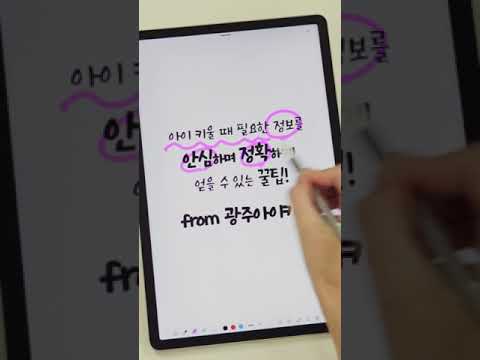 아이 키울 때 필요한 정보를
안심하며 정확하
얻을 수 있는 꿀팁!
from 광주아이